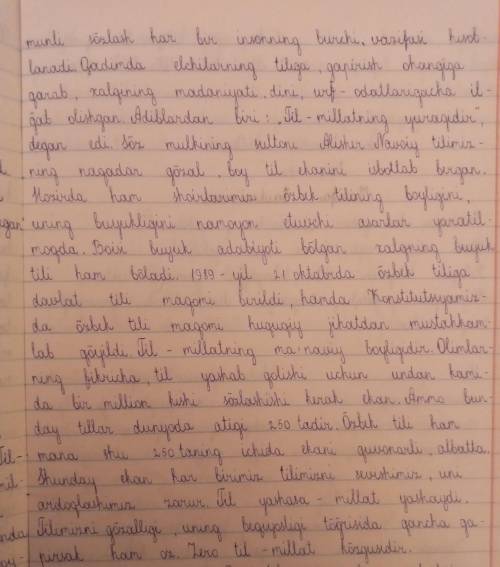 munli sözlash har bir insonning burchi, vazifasi hisob-
lanadi. Qadimda elchilarning tiliga, gapirish ohangiga
qarab, xalqining madaniyati, dini, urf-odatlarigacha il-
ğab olishgan. Adiblardan biri: „Til - millatning yuragidir",
degan edi. Söz mulkining sultoni Alisher Navoiy tilimiz-
ning naqadar gözal, boy til ekanini isbotlab bergan.
Hozirda ham shoirlarimiz özbek tilining boyligini,
uning buyukligini namoyon etuvchi asarlar yaratil-
moqda. Boisi buyuk adabiyoti bölgan xalqning buyuk
tili ham böladi. 1989-yil 21 oktabrda özbek tiliga
davlat tili maqomi berildi, hamda Konstitutsiyamiz-
da özbek tili maqomi huquqiy jihatdan mustahkam-
lab qöyildi. Til - millatning ma'naviy boyligidir. Olimlar-
ning fikricha, til yashab qolishi uchun undan kami-
da bir million kishi sözlashishi kerak ekan. Ammo bun-
day tillar dunyoda atigi 250 tadir. Özbek tili ham
mana shu 250 taning ichida ekani quvonarli, albatta.
Shunday ekan har birimiz tilimizni sevishimiz, uni
ardoqlashimiz zarur. Til yashasa - millat yashaydi.
Tilimizni gözalligi, uning beqiyosligi töğrisida qancha ga-
pirsak ham oz. Zero til - millat közgusidir.